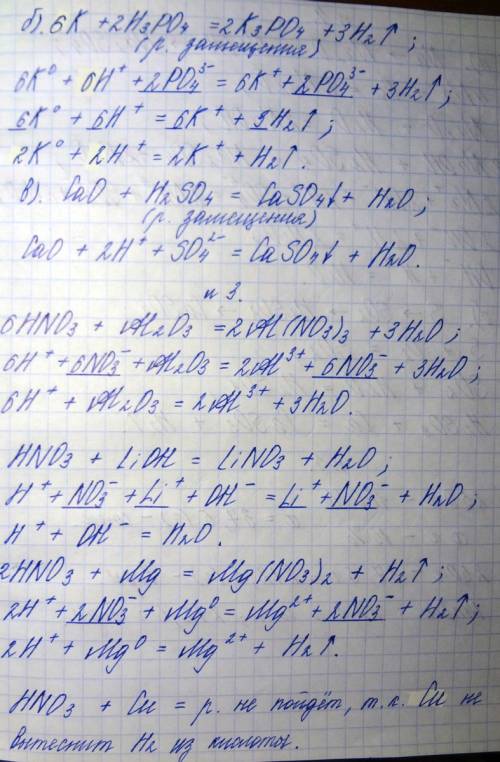 б). 6K + 2H₃PO₄ = 2K₃PO₄ + 3H₂↑;
(р. замещения)
6K⁰ + 6H⁺ + 2PO₄³⁻ = 6K⁺ + 2PO₄³⁻ + 3H₂↑;
6K⁰ + 6H⁺ = 6K⁺ + 3H₂↑;
2K⁰ + 2H⁺ = 2K⁺ + H₂↑.
в). CaO + H₂SO₄ = CaSO₄↓ + H₂O;
(р. замещения)
CaO + 2H⁺ + SO₄²⁻ = CaSO₄↓ + H₂O.
н 3.
6HNO₃ + Al₂O₃ = 2Al(NO₃)₃ + 3H₂O;
6H⁺ + 6NO₃⁻ + Al₂O₃ = 2Al³⁺ + 6NO₃⁻ + 3H₂O;
6H⁺ + Al₂O₃ = 2Al³⁺ + 3H₂O.
HNO₃ + LiOH = LiNO₃ + H₂O;
H⁺ + NO₃⁻ + Li⁺ + OH⁻ = Li⁺ + NO₃⁻ + H₂O;
H⁺ + OH⁻ = H₂O.
2HNO₃ + Mg = Mg(NO₃)₂ + H₂↑;
2H⁺ + 2NO₃⁻ + Mg⁰ = Mg²⁺ + 2NO₃⁻ + H₂↑;
2H⁺ + Mg⁰ = Mg²⁺ + H₂↑.
HNO₃ + Cu = р. не пойдёт, т.к. Cu не
вытеснит H₂ из кислоты.